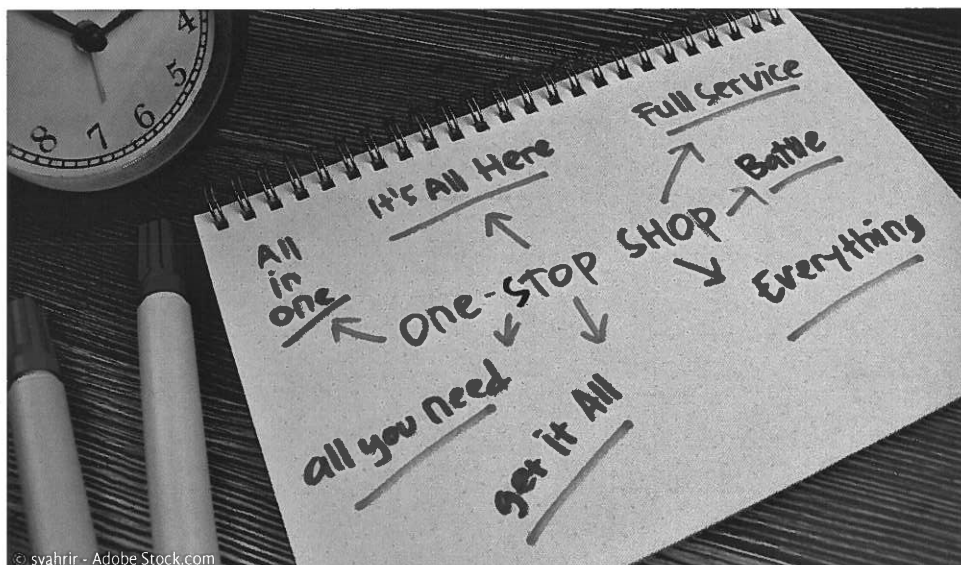 4
5
6
7
8
Full Service
It's All Here
Battle
All
in
one
One-STOP SHOP
Everything
all you need
get it All
© syahrir - Adobe Stock.com